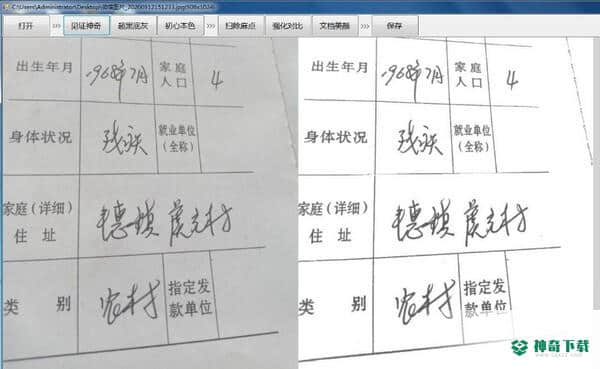 C:\Users\Administrator\Desktop\微信图片_20200912151233.jpg(906x1024)
打开 >>> 见证神奇 超黑底灰 初心本色 >>> 扫除麻点 强化对比 文档美颜 >>> 保存
出生年月 1968年7月 家庭人口 4
身体状况 残疾 就业单位(全称)
家庭(详细)住址
类别 农村 指定发款单位
出生年月 1968年7月 家庭人口 4
身体状况 残疾 就业单位(全称)
家庭(详细)住址
类别 农村 指定发款单位
神奇下载